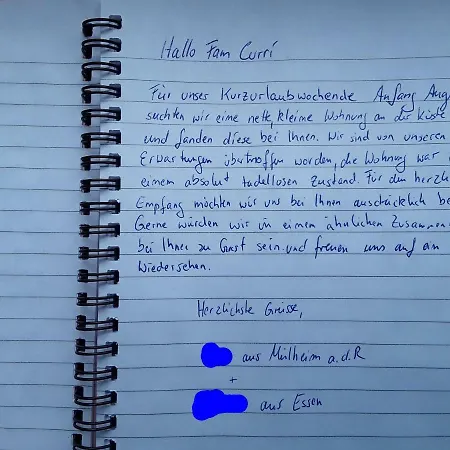 Hallo Fam Curri
Für unser Kurzurlaubwochende Anfang Aug
suchten wir eine nette, kleine Wohnung an der Küste
und fanden diese bei Ihnen. Wir sind von unseren
Erwartungen übertroffen worden, die Wohnung war
einem absolut tadellosen Zustand. Für den herzli
Empfang möchten wir uns bei Ihnen ausdrücklich be
Gerne würden wir in einem ähnlichen Zusammen
bei Ihnen zu Gast sein und freuen uns auf ein
Wiedersehen.
Herzlichste Grüsse,
aus Mülheim a.d.R
+
aus Essen